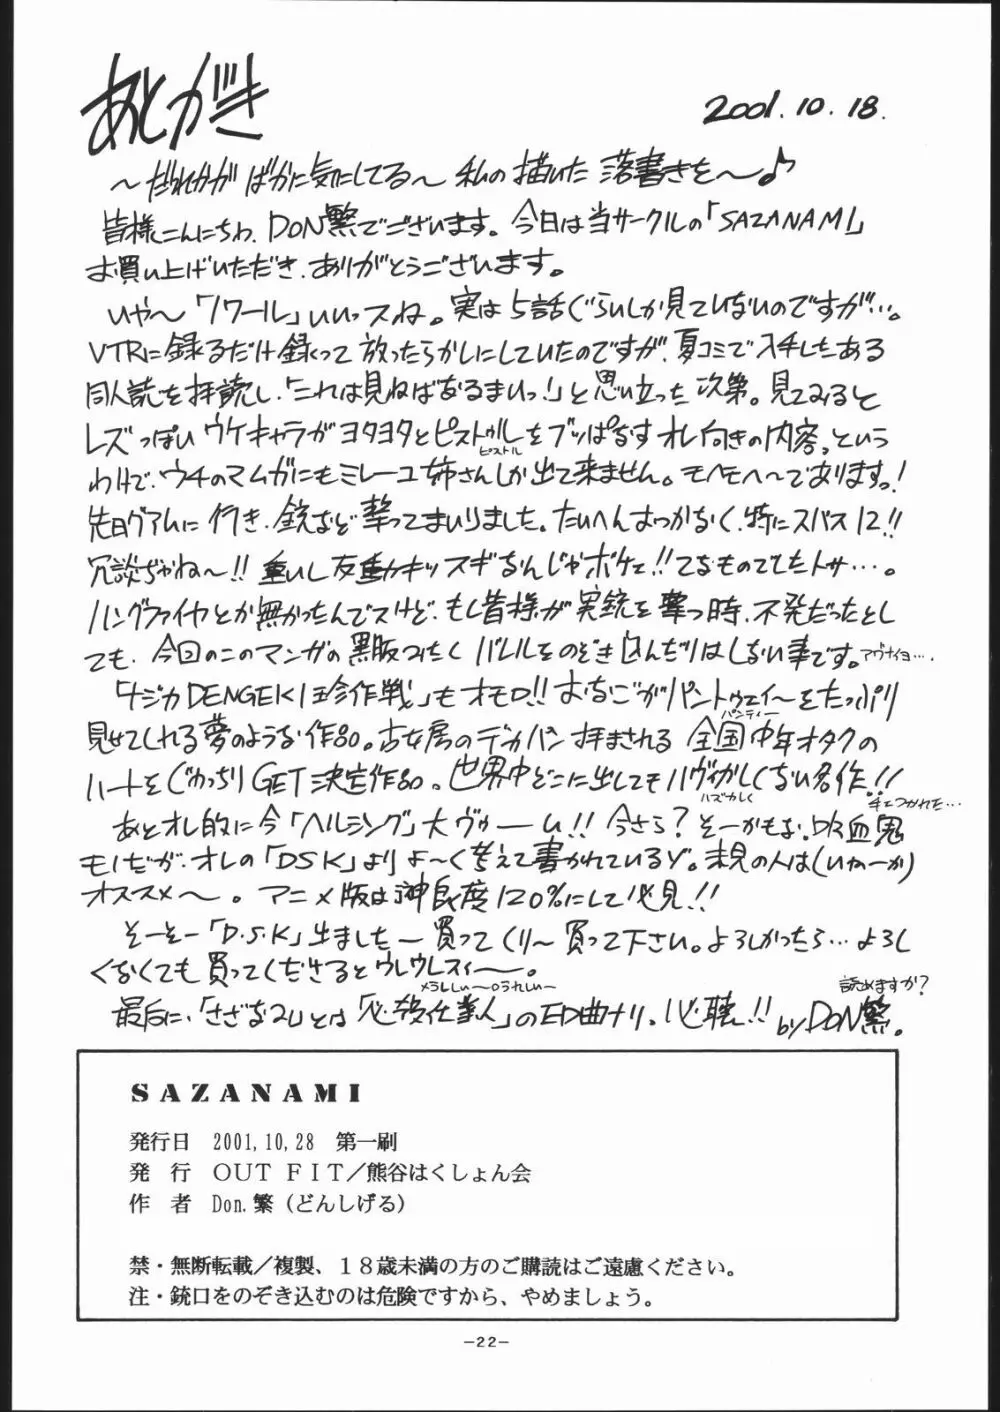 あとがき
2001.10.18.
〜だれかが ばかに気にしてる〜 私の描いた 落書きを〜♪
皆様こんにちわ、DON繁でございます。今日は当サークルの「SAZANAMI」
お買い上げいただき、ありがとうございます。
いや〜「ノワール」いいっスね。実は5話ぐらいしか見ていないのですが…。
VTRに録るだけ録って放ったらかしにしていたのですが、夏コミで入手したある
同人誌を拝読し、「これは見ねばなるまいっ!」と思い立った次第。見てみると
レズっぽいウケキャラがヨタヨタとピストゥルをブッぱなすオレ向きの内容。という
ピストル
わけで、ウチのマムガにもミレーユ姉さんしか出て来ません。モヘモヘ〜であります。!
先日グアムに行き、銃など撃ってまいりました。たいへんおっかなく、特にスパス12!!
冗談ぢゃね〜!! 重いし反動キッツスギるんじゃボケェ!! てなものでしたトサ…。
ハングファイヤとか無かったんでスけど、もし皆様が実銃を撃つ時、不発だったとし
ても、今回のこのマンガの黒服みたくバレルをのぞき込んだりはしない事です。アヴナイヨ….
「ナジカDENGEKI珍作戦」もオモロ!! おなごがパントゥエィ〜をたっぷり
パンティー
見せてくれる夢のような作品。古女房のデカパン拝まされる全国中年オタクの
ハートをがっちりGET決定作品。世界中どこに出してもハヴィかしくない名作!!
ハズかしく
手エつかれた…
あとオレ的に今「ヘルシング」大ヴゥーム!! 今さら? そーかもな。吸血鬼
モノだが、オレの「DSK」よりよ〜く考えて書かれているゾ。未見の人は(いねーか)
オススメ〜。アニメ版は沖良度120%にして必見!!
そーそー「D.S.K」出ました〜買ってくり〜買って下さい。よろしかったら…よろし
くなくても買ってくださるとウレウレスィ〜。
読めますか?
最后に、「さざなみ」とは「必殺仕業人」のED曲ナリ。必聴!! by DON繁。
SAZANAMI
発行日 2001,10,28 第一刷
発 行 OUT FIT／熊谷はくしょん会
作 者 Don.繁（どんしげる）
禁・無断転載／複製、１８歳未満の方のご購読はご遠慮ください。
注・銃口をのぞき込むのは危険ですから、やめましょう。
-22-